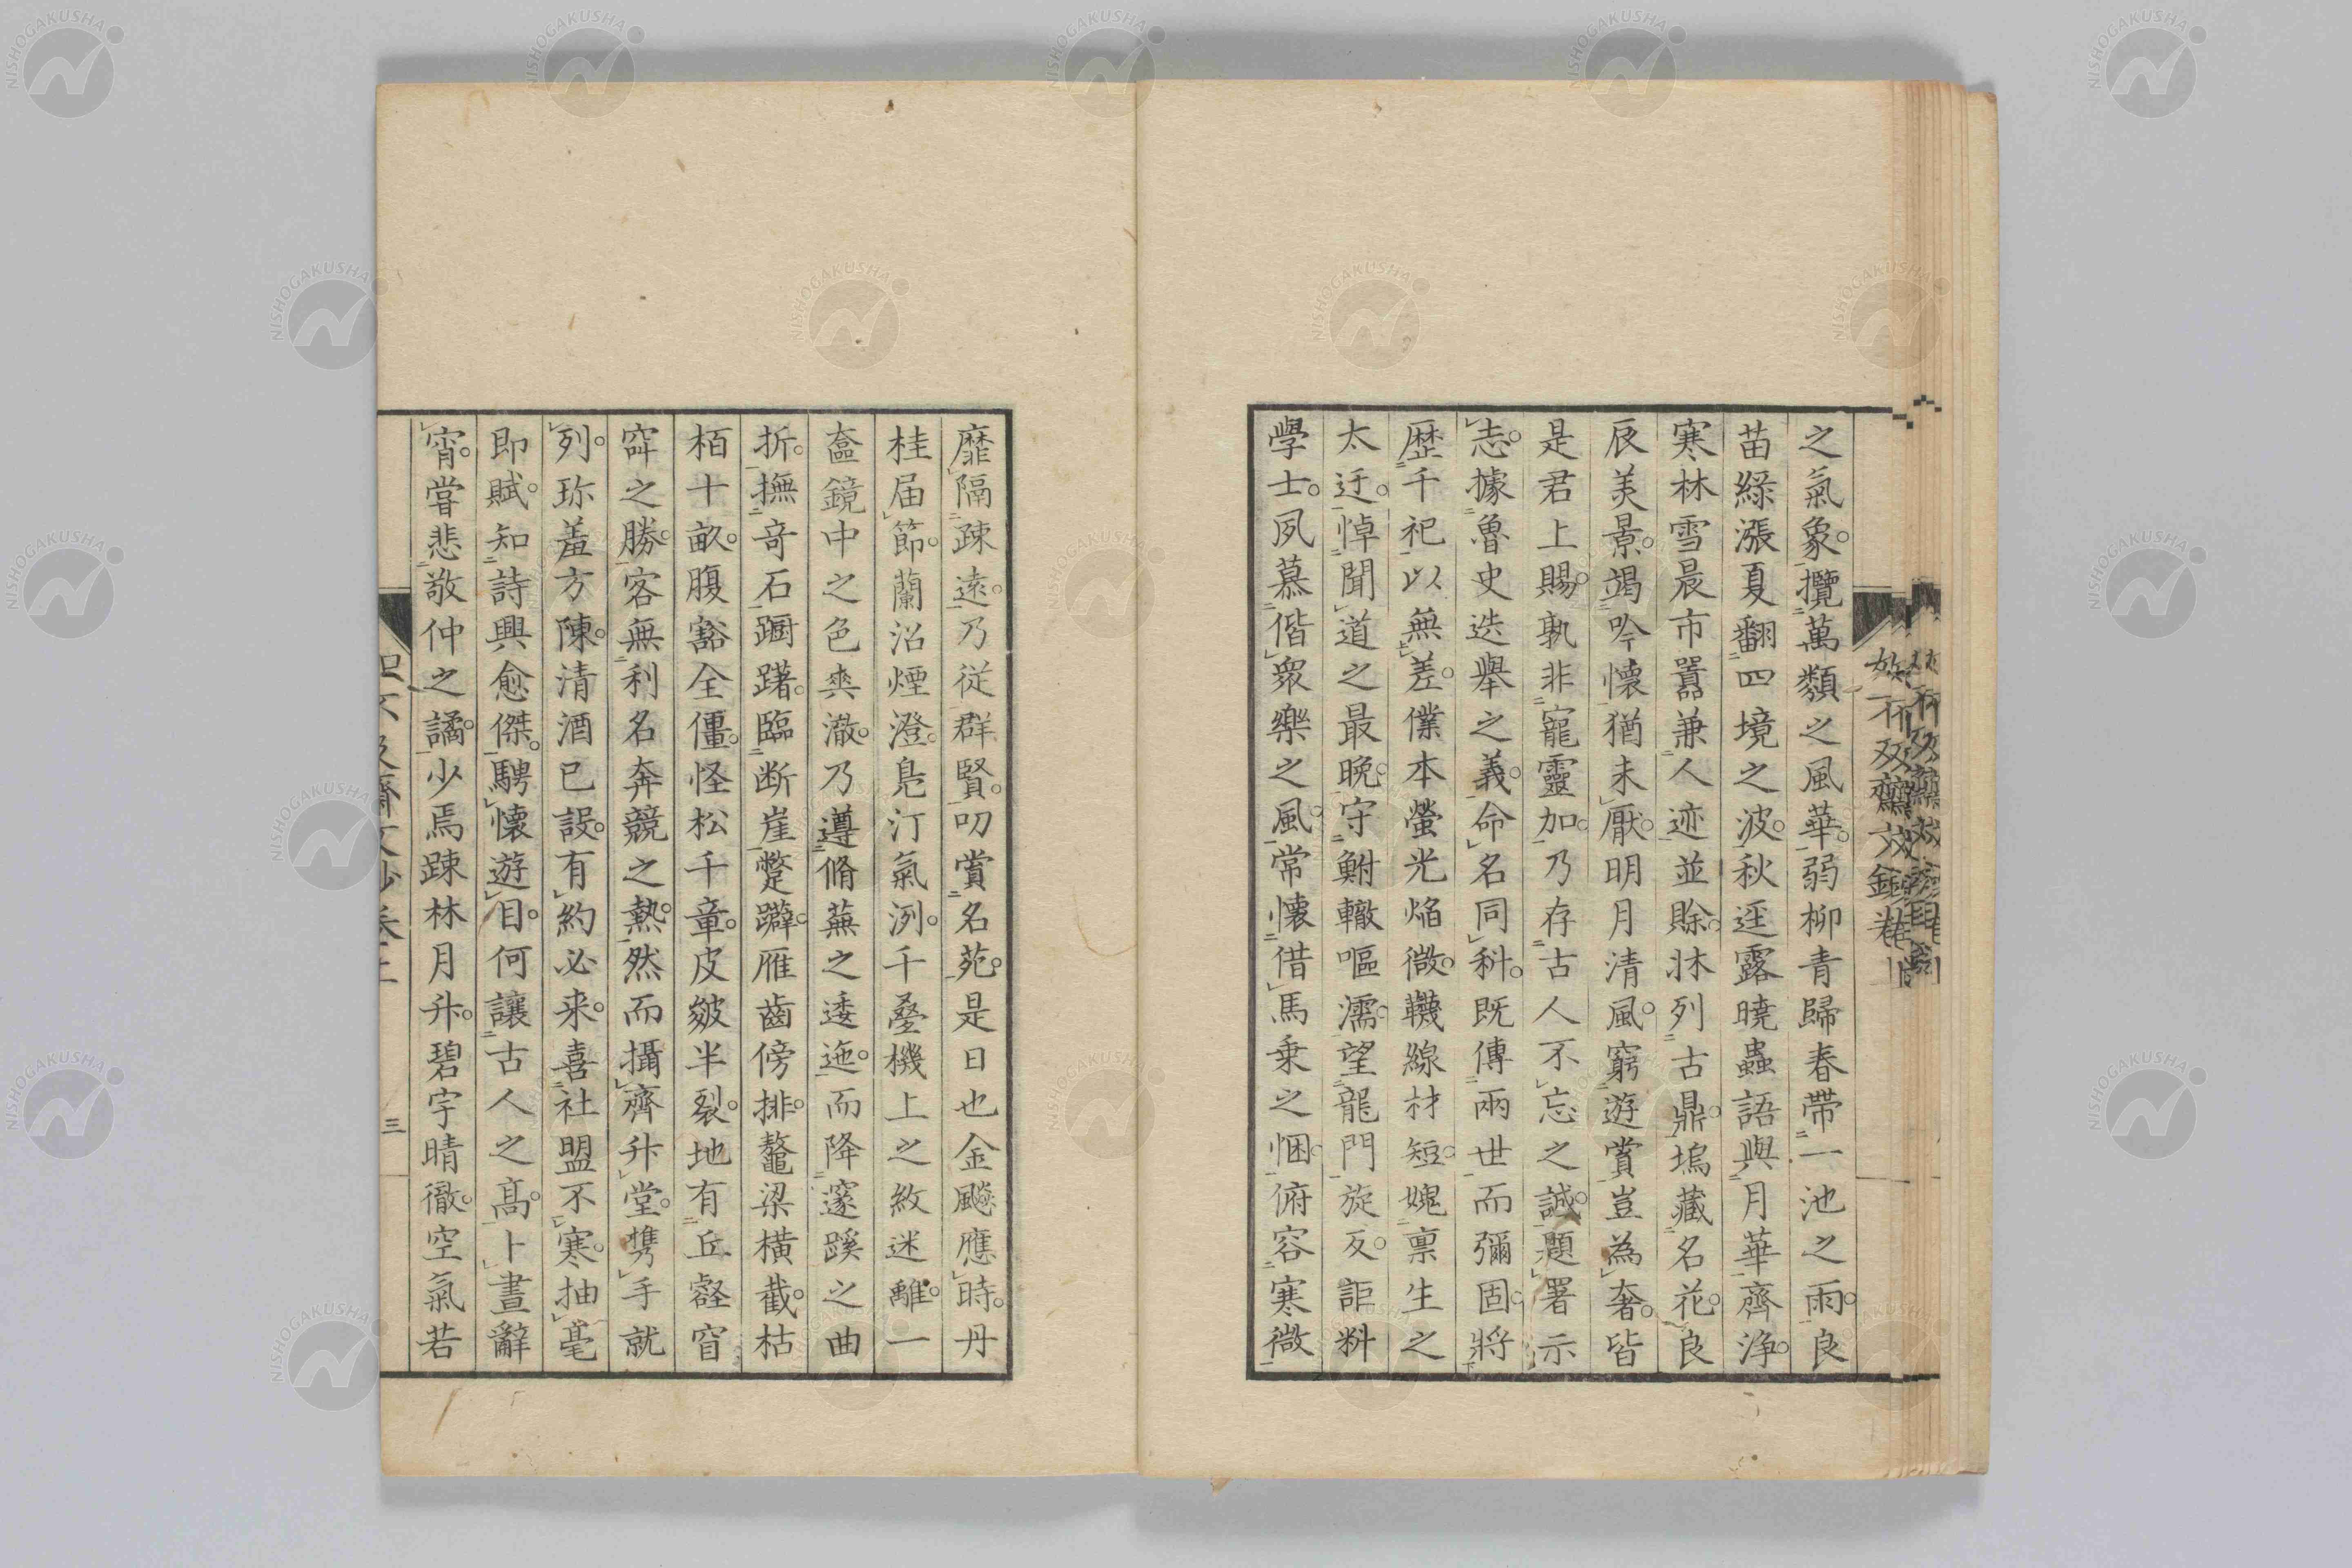 之氣象。攬萬類之風華。弱柳青歸春帶一池之雨。良
苗綠漲夏翻四境之波。秋逕露曉蟲語與月華齊浄。
寒林雪晨市囂兼人迹並賒。牀列古鼎。塢藏名花。良
辰美景。竭吟懷猶未厭。明月清風。窮遊賞豈為奢。皆
是君上賜。孰非寵靈加。乃存古人不忘之誠。題署示
志。據魯史迭舉之義。命名同科。既傳兩世而彌固。將
歷千祀以無差。僕本螢光焔微。韈線材短。媿禀生之
太迂。悼聞道之最晩。守鮒轍嘔濡。望龍門旋反。詎料
學士。夙慕偕衆樂之風。常懷借馬乗之悃。俯容寒微
靡隔疎遠。乃從群賢。叨賞名苑。是日也金飈應時。丹
桂届節。蘭沼煙澄。鳧汀氣洌。千疊機上之紋迷離。一
奩鏡中之色爽澈。乃遵脩蕪之逶迤。而降邃蹊之曲
折。撫竒石蹰躇。臨断崖蹩躃。雁齒傍排。鼇梁横截。枯
栢十畝。腹豁全僵。怪松千章。皮皴半裂。地有丘壑窅
窱之勝。客無利名奔競之熱。然而攝齊升堂。携手就
列。珎羞方陳。清酒已設。有約必来。喜社盟不寒。抽毫
即賦。知詩興愈傑。騁懷遊目。何讓古人之高。卜晝辭
宵。嘗悲敬仲之譎。少焉踈林月升。碧宇晴徹。空氣若
三
NISHOGAKUSHA